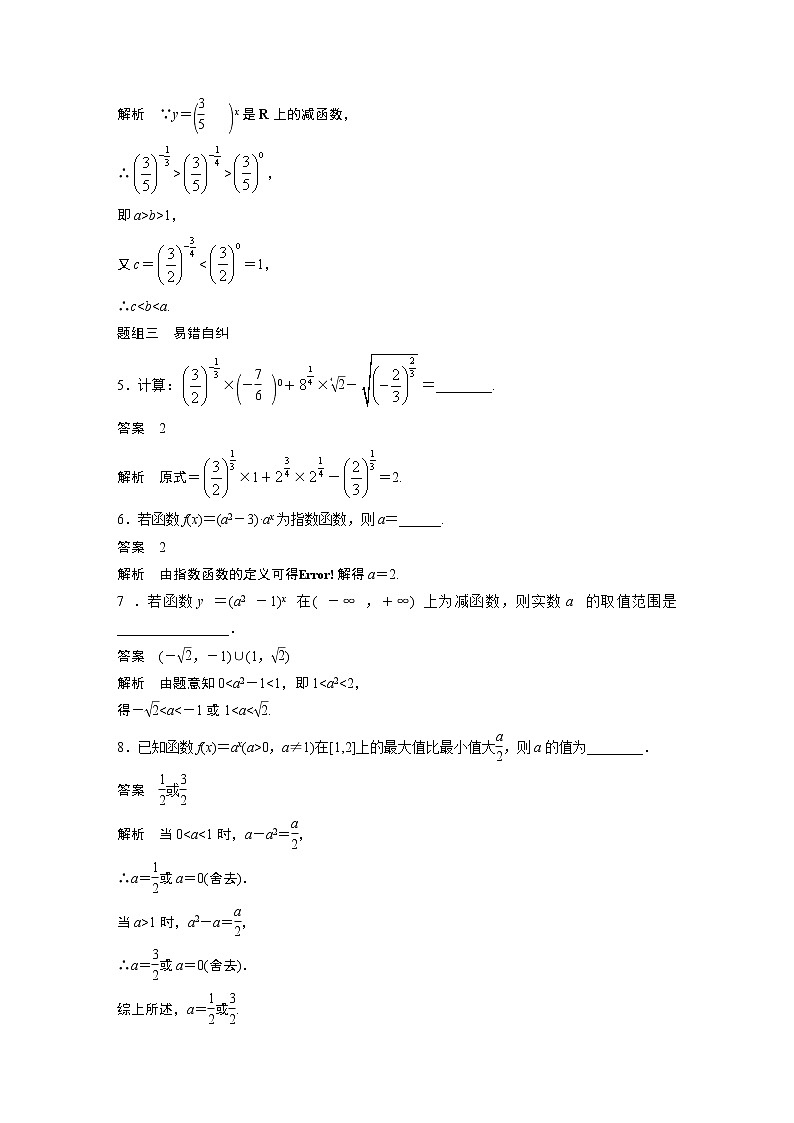 解析　∵y＝(3/5)^x是R上的减函数，
∴(3/5)^(-1/3)>(3/5)^(-1/4)>(3/5)^0，
即a>b>1，
又c＝(3/2)^(-3/4)<(3/2)^0＝1，
∴c<b<a.
题组三　易错自纠
5．计算：(3/2)^(-1/3)×(－7/6)^0＋8^(1/4)×∜2－√((－2/3)^(2/3))＝________.
答案　2
解析　原式＝(3/2)^(1/3)×1＋2^(3/4)×2^(1/4)－(2/3)^(1/3)＝2.
6．若函数f(x)＝(a²－3)·a^x为指数函数，则a＝______.
答案　2
解析　由指数函数的定义可得Error!解得a＝2.
7．若函数y＝(a²－1)^x在(－∞，＋∞)上为减函数，则实数a的取值范围是
________________．
答案　(－√2，－1)∪(1，√2)
解析　由题意知0<a²－1<1，即1<a²<2，
得－√2<a<－1或1<a<√2.
8．已知函数f(x)＝a^x(a>0，a≠1)在[1,2]上的最大值比最小值大a/2，则a的值为________．
答案　1/2或3/2
解析　当0<a<1时，a－a²＝a/2，
∴a＝1/2或a＝0(舍去)．
当a>1时，a²－a＝a/2，
∴a＝3/2或a＝0(舍去)．
综上所述，a＝1/2或3/2.